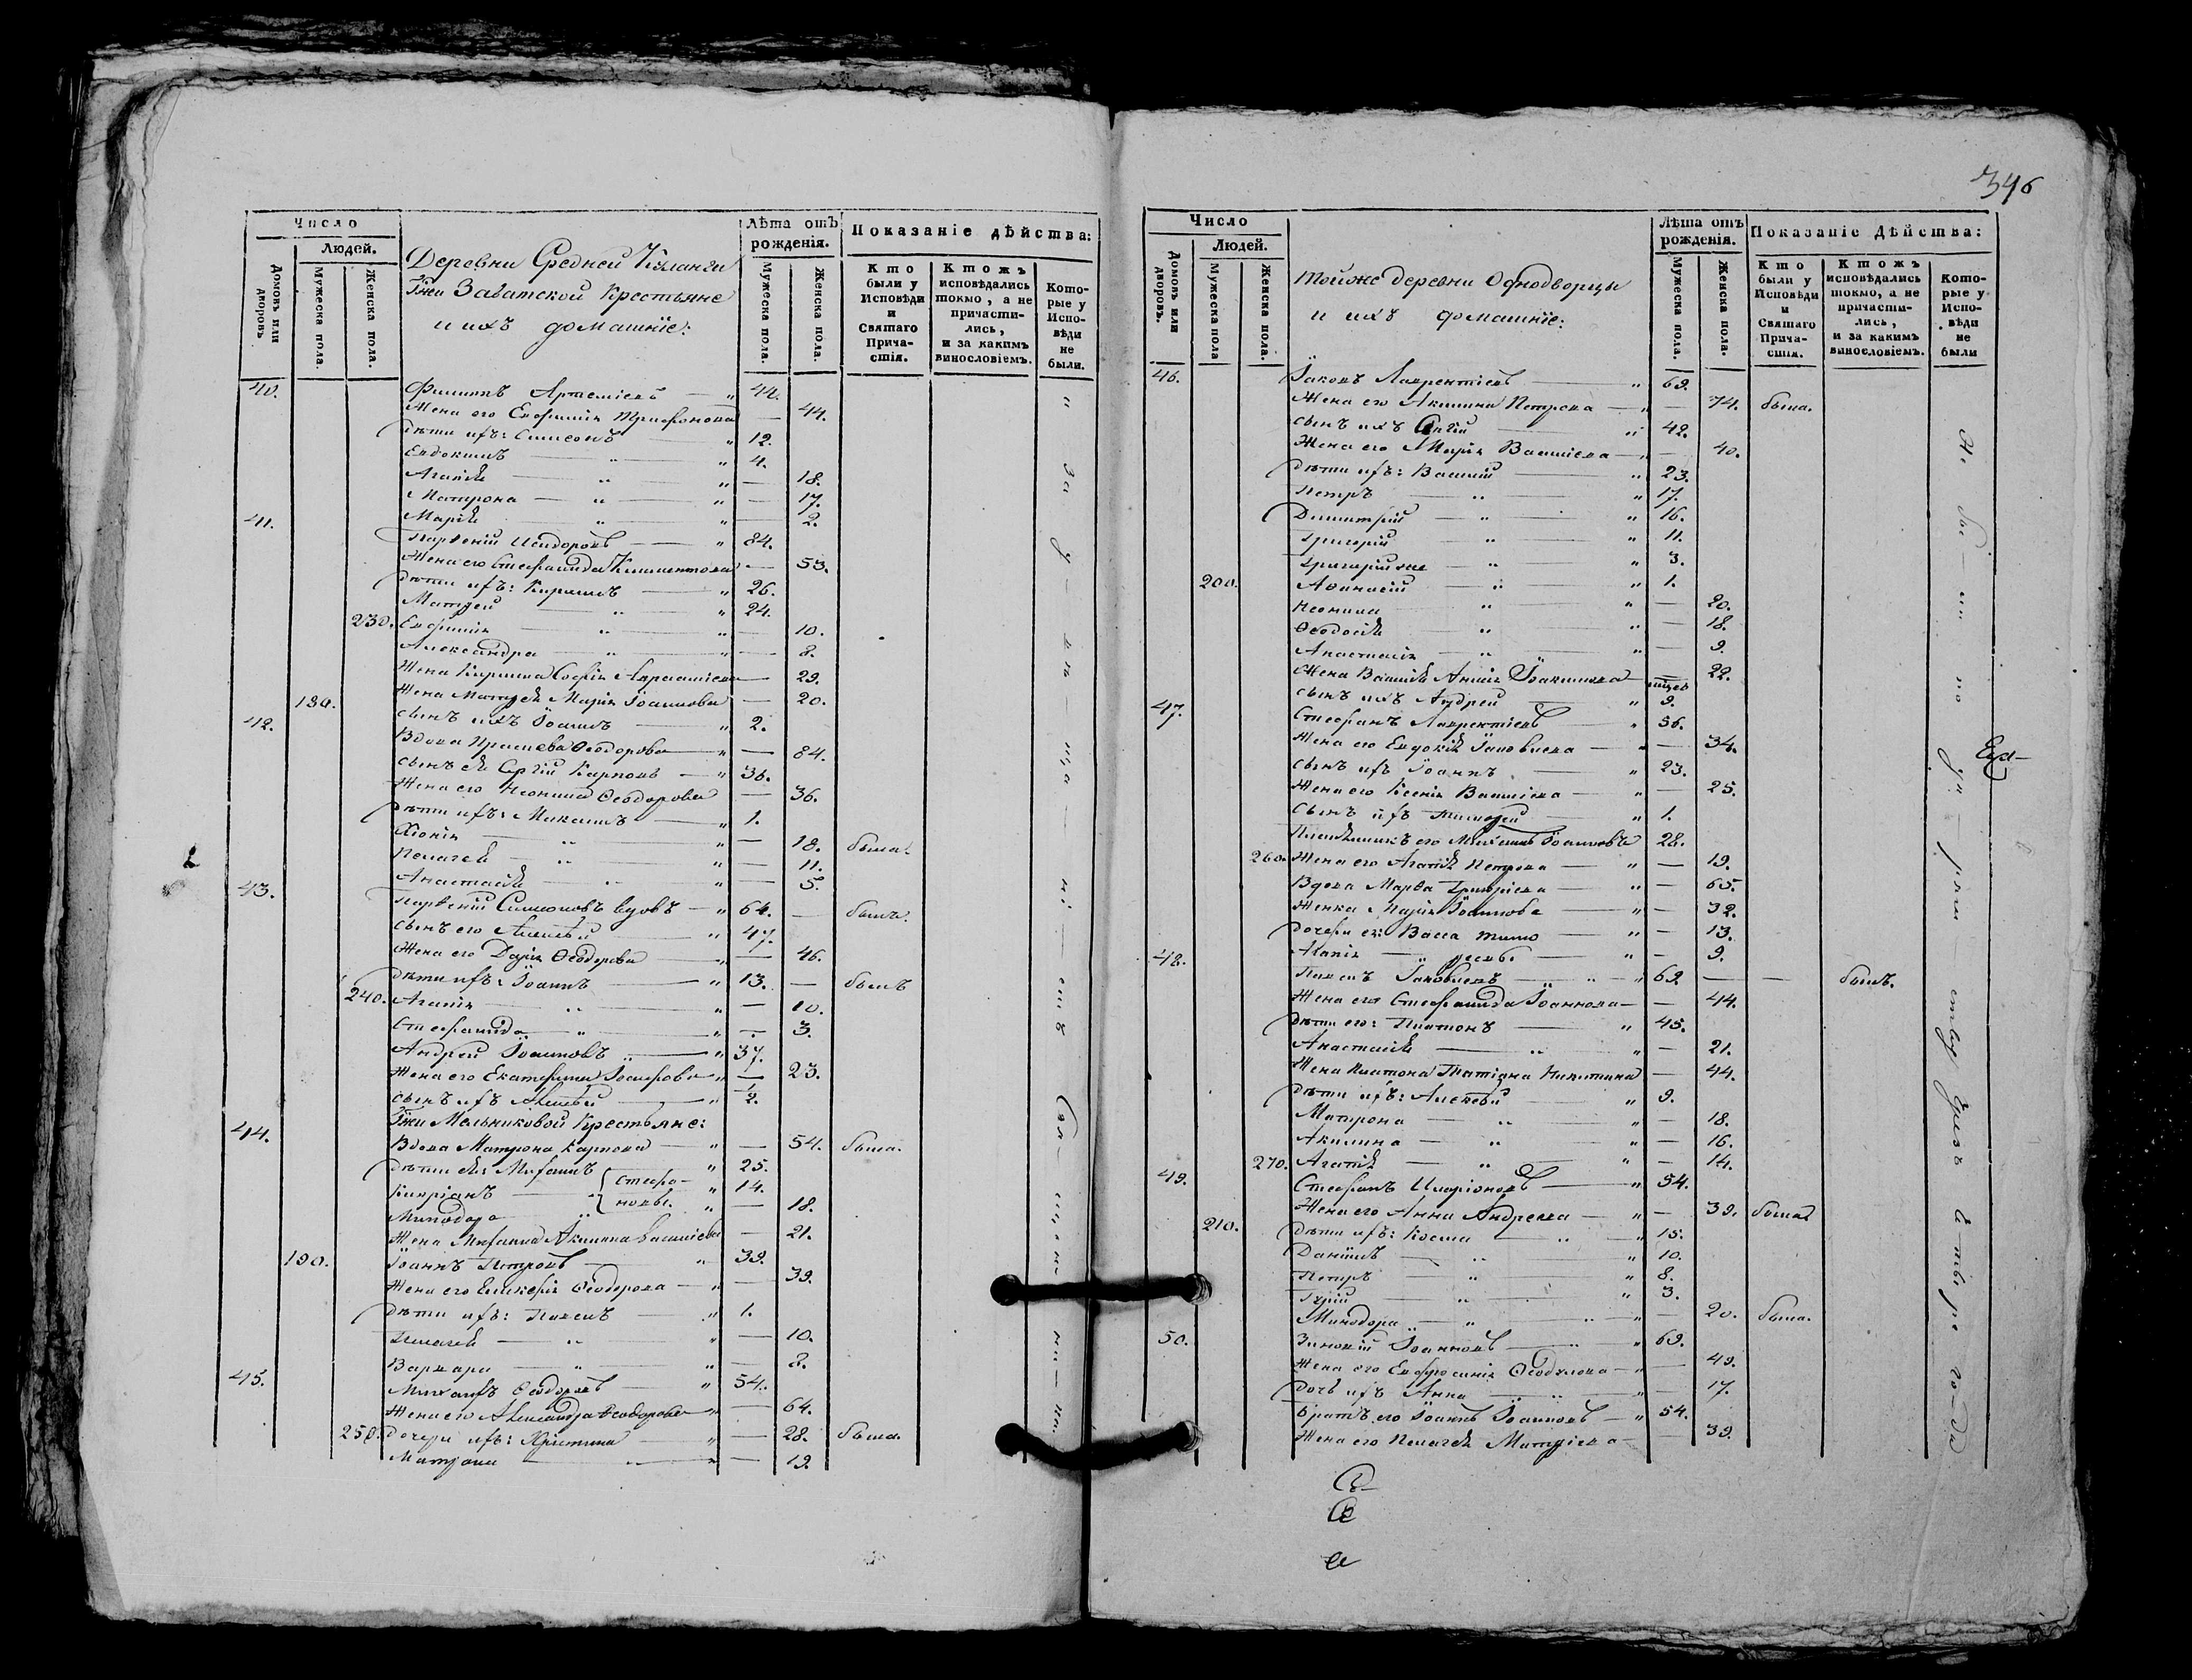 346
Число
Людей.
Домовъ или дворовъ
Мужеска пола.
Женска пола.
Деревни Средней Куланги
Гжи Заватской Крестьяне
и ихъ домашніе:
Лѣта отъ рожденія.
Мужеска пола.
Женска пола.
Показаніе дѣйства:
Кто были у Исповѣди и Святаго Прича-стія.
Ктожъ исповѣдались токмо, а не причасти-лись, и за какимъ винословіемъ.
Кото-рые у Испо-вѣди не были.
40. Филиппъ Артеміевъ — „ 44.
Жена его Евфимія Трифонова — 44.
Дѣти ихъ: Симеонъ — „ 12.
Евдокимъ — „ — „ 4.
Агапія — „ — „ — 18.
Матрона — „ — „ — 17.
Марія „ — „ — 2.
41. Парѳеній Исидоровъ — „ 84.
Жена его Стефанида Климентова — 53.
Дѣти ихъ: Кириллъ — „ 26.
Матѳей — „ — „ 24.
230. Евфимія — „ — „ — 10.
Александра — „ — „ — 8.
Жена Кирилла Софія — 29.
180. Жена Матѳея Марія Іоаннова — 20.
42. сынъ ихъ Іоаннъ — „ 2.
Вдова Ѳеодорова — „ — 84.
сынъ ея Сергій Карповъ — „ 36.
Жена его Неонила Ѳеодорова — 36.
Дѣти ихъ: Михаилъ — „ 1.
Хіонія — „ — „ — 18. была.
Пелагея — „ — „ — 11.
Анастасія — „ — „ — 5.
43. Парѳеній Симеоновъ вдовъ — „ 64. — былъ.
сынъ его Алексѣй — „ 47.
Жена его Дарія Ѳеодорова — „ — 46.
Дѣти ихъ: Іоаннъ — „ 13. — былъ
240. Агапія — „ — „ — 10.
Стефанида — „ — „ — 3.
Андрей Іоанновъ „ — „ 37.
Жена его Екатерина — „ — 23.
сынъ ихъ Алексѣй — „ 1/2.
Гжи Мельниковой Крестьяне:
44. Вдова Матрона Карпова — „ — 54. была.
Дѣти ея: Михаилъ — „ 25.
Кипріанъ — { Стефа-новы. „ 14.
Минодора „ „ — 18.
Жена Михаила Акилина Василіева — 21.
190. Іоаннъ Петровъ — „ 39.
Жена его Гликерія Ѳеодорова — „ — 39.
Дѣти ихъ: Павелъ — „ 1.
Пелагея — „ — „ — 10.
Варвара — „ — „ — 8.
45. Михаилъ Ѳеодоровъ — „ 54.
Жена его Александра Ѳеодорова „ — 64.
250. дочери ихъ: Христина — „ — 28. была.
Матрона — „ — „ — 19.
Число
Людей.
Домовъ или дворовъ.
Мужеска пола
Женска пола.
Тойже деревни Однодворцы
и ихъ домашніе:
Лѣта отъ рожденія.
Мужеска пола.
Женска пола.
Показаніе Дѣйства:
Кто были у Исповѣди и Святаго Прича-стія.
Ктожъ исповѣдались токмо, а не причасти-лись, и за какимъ винословіемъ.
Кото-рые у Испо-вѣди не были
46. Іаковъ Лаврентіевъ — „ 69.
Жена его Акилина Петрова — „ — 74. была.
сынъ ихъ Сергій — „ 42.
Жена его Марія Василіева — „ — 40.
Дѣти ихъ: Василій — „ 23.
Петръ — „ — „ 17.
Димитрій — „ — „ 16.
Григорій „ — „ 11.
Григорій же — „ — „ 3.
200. Аѳанасій — „ — „ 1.
Неонила „ — „ — 20.
Ѳеодосія — „ — „ — 18.
Анастасія — „ — „ — 9.
Жена Василія Анна — 22.
сынъ ихъ Андрей „ 9.
47. Стефанъ Лаврентіевъ — „ 56.
Жена его Евдокія Іаковлева — „ — 34.
сынъ ихъ Іоаннъ — „ 23.
Жена его Ксенія Василіева — „ — 25.
Сынъ ихъ Тимоѳей — „ 1.
Племянникъ его Михаилъ Іоанновъ 28.
260. Жена его Агапія Петрова — „ — 19.
Вдова Марѳа Григоріева — „ — 65.
Женка Марія Іоаннова — „ — 32.
дочери ея: Васса — „ — 13.
Агапія — „ — 9.
48. Павелъ Іаковлевъ — „ 69. — — былъ.
Жена его Стефанида Іоаннова — — 44.
Дѣти его: Платонъ — „ 45.
Анастасія — „ „ — 21.
Жена Платона Татіана Никитина — 44.
Дѣти ихъ: Алексѣй — „ 9.
Матрона — „ „ — 18.
Акилина — „ „ — 16.
270. Агапія — „ — „ — 14.
49. Стефанъ Иларіоновъ — „ 54.
Жена его Анна Андреева — „ — 39. была
210. Дѣти ихъ: Косма — „ — „ 15.
Даніилъ — „ — „ 10.
Петръ — „ — „ 8.
Гурій — „ — „ 3.
Минодора — „ — „ — 20. была.
50. Зиновій Іоанновъ — „ 69.
Жена его Евфросинія Ѳеодулова — „ — 49.
Дочь ихъ Анна — „ — „ — 17.
Братъ его Іоаннъ Іоанновъ — „ 54.
Жена его Пелагея Матѳіева — — 39.